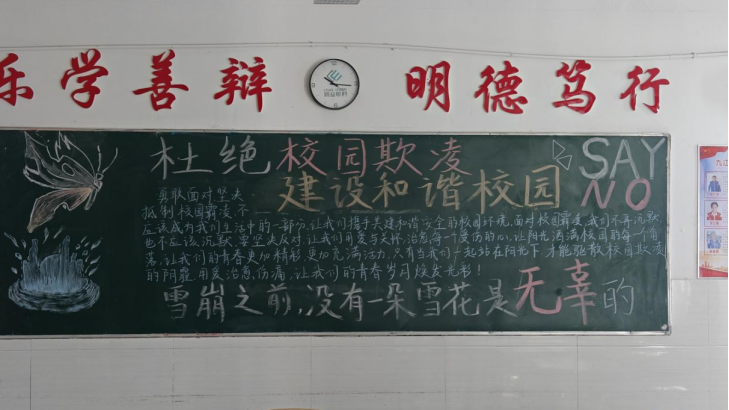 乐学善辩 明德笃行
杜绝校园欺凌 SAY
建设和谐校园 NO
勇敢面对坚决
抵制校园霸凌不
应该成为我们生活中的一部分,让我们携手共建和谐安全的校园环境,面对校园霸凌,我们不再沉默
也不应该沉默,要坚决反对,让我们用爱与关怀,治愈每一个受伤的心,让阳光洒满校园的每一个角
落,让我们的青春更加精彩,更加充满活力,只有当我们一起站在阳光下,才能驱散校园欺凌
的阴霾,用爱治愈伤痛,让我们的青春岁月焕发光彩!
雪崩之前,没有一朵雪花是无辜的